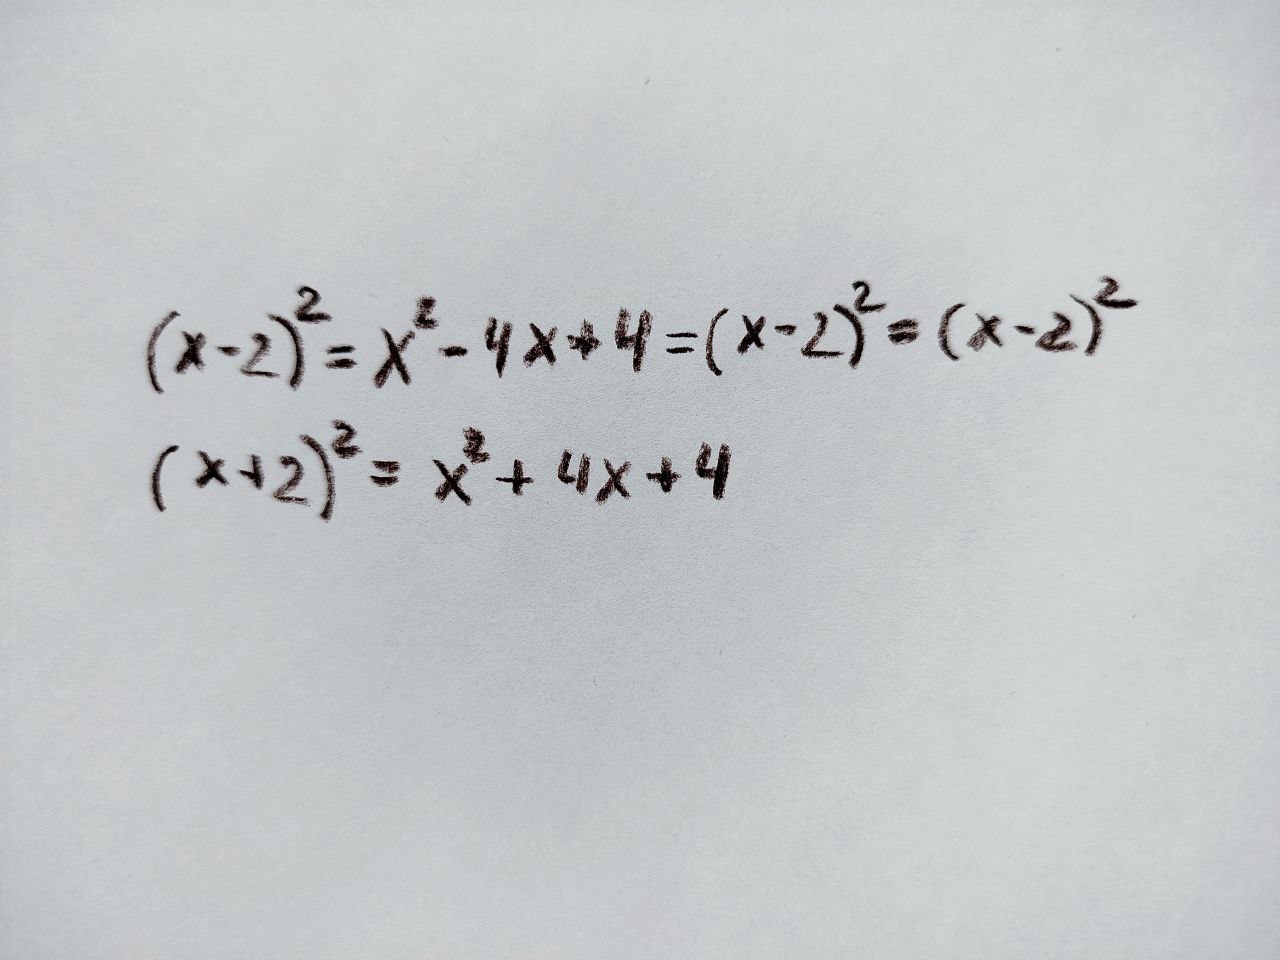 (x-2)² = x² - 4x + 4 = (x-2)² = (x-2)²
(x+2)² = x² + 4x + 4